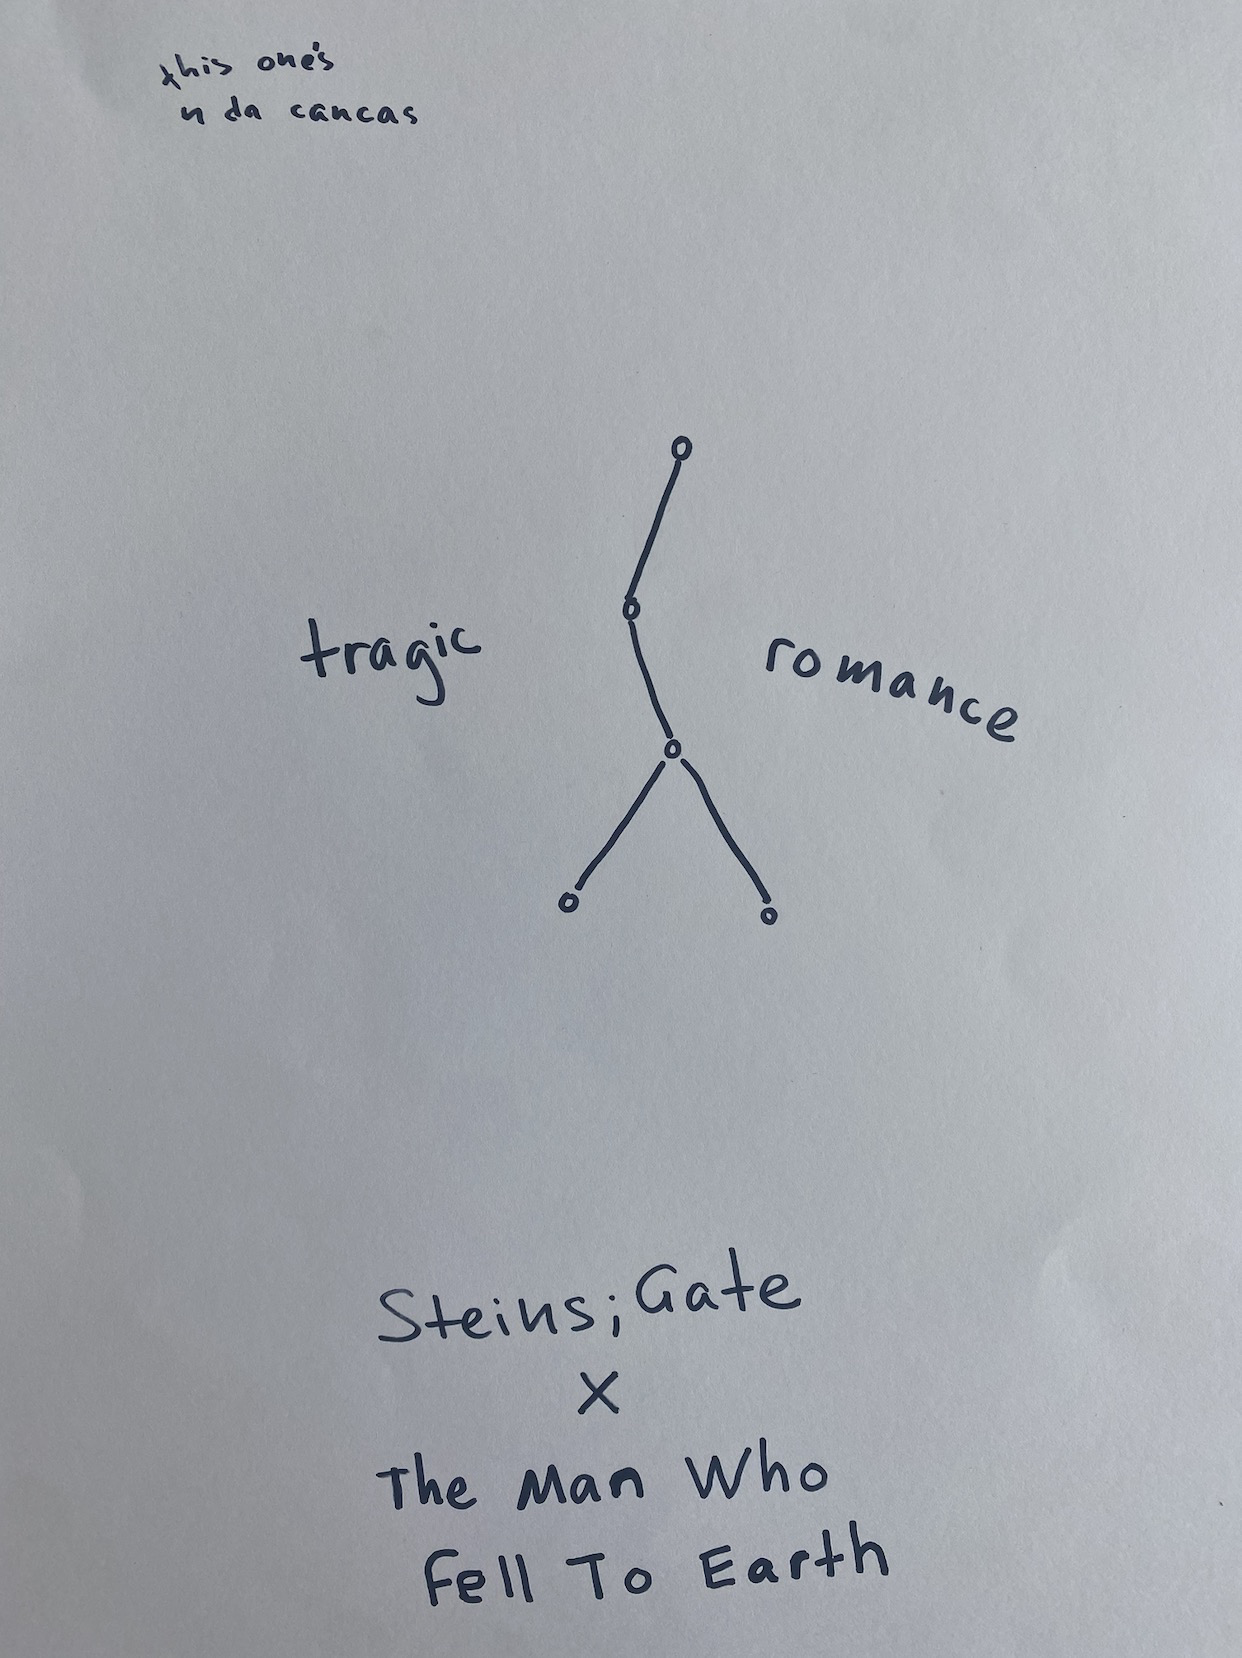 this one's
n da cancas
tragic
romance
Steins;Gate
X
The Man Who
Fell To Earth